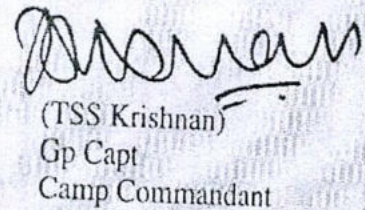 (TSS Krishnan)
Gp Capt
Camp Commandant